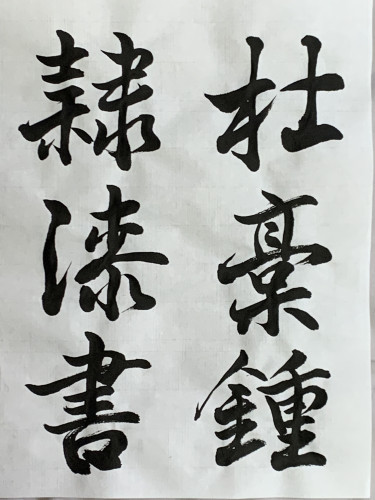 杜稾鍾
隸漆書